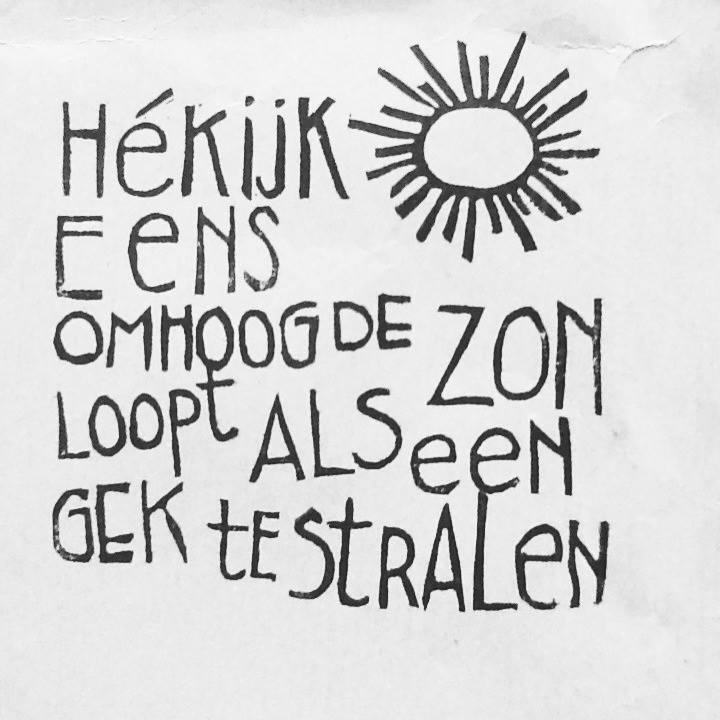 Hé KIJK
EENS
OMHOOG DE ZON
LOOPt ALS een
GEK tE StRALeN